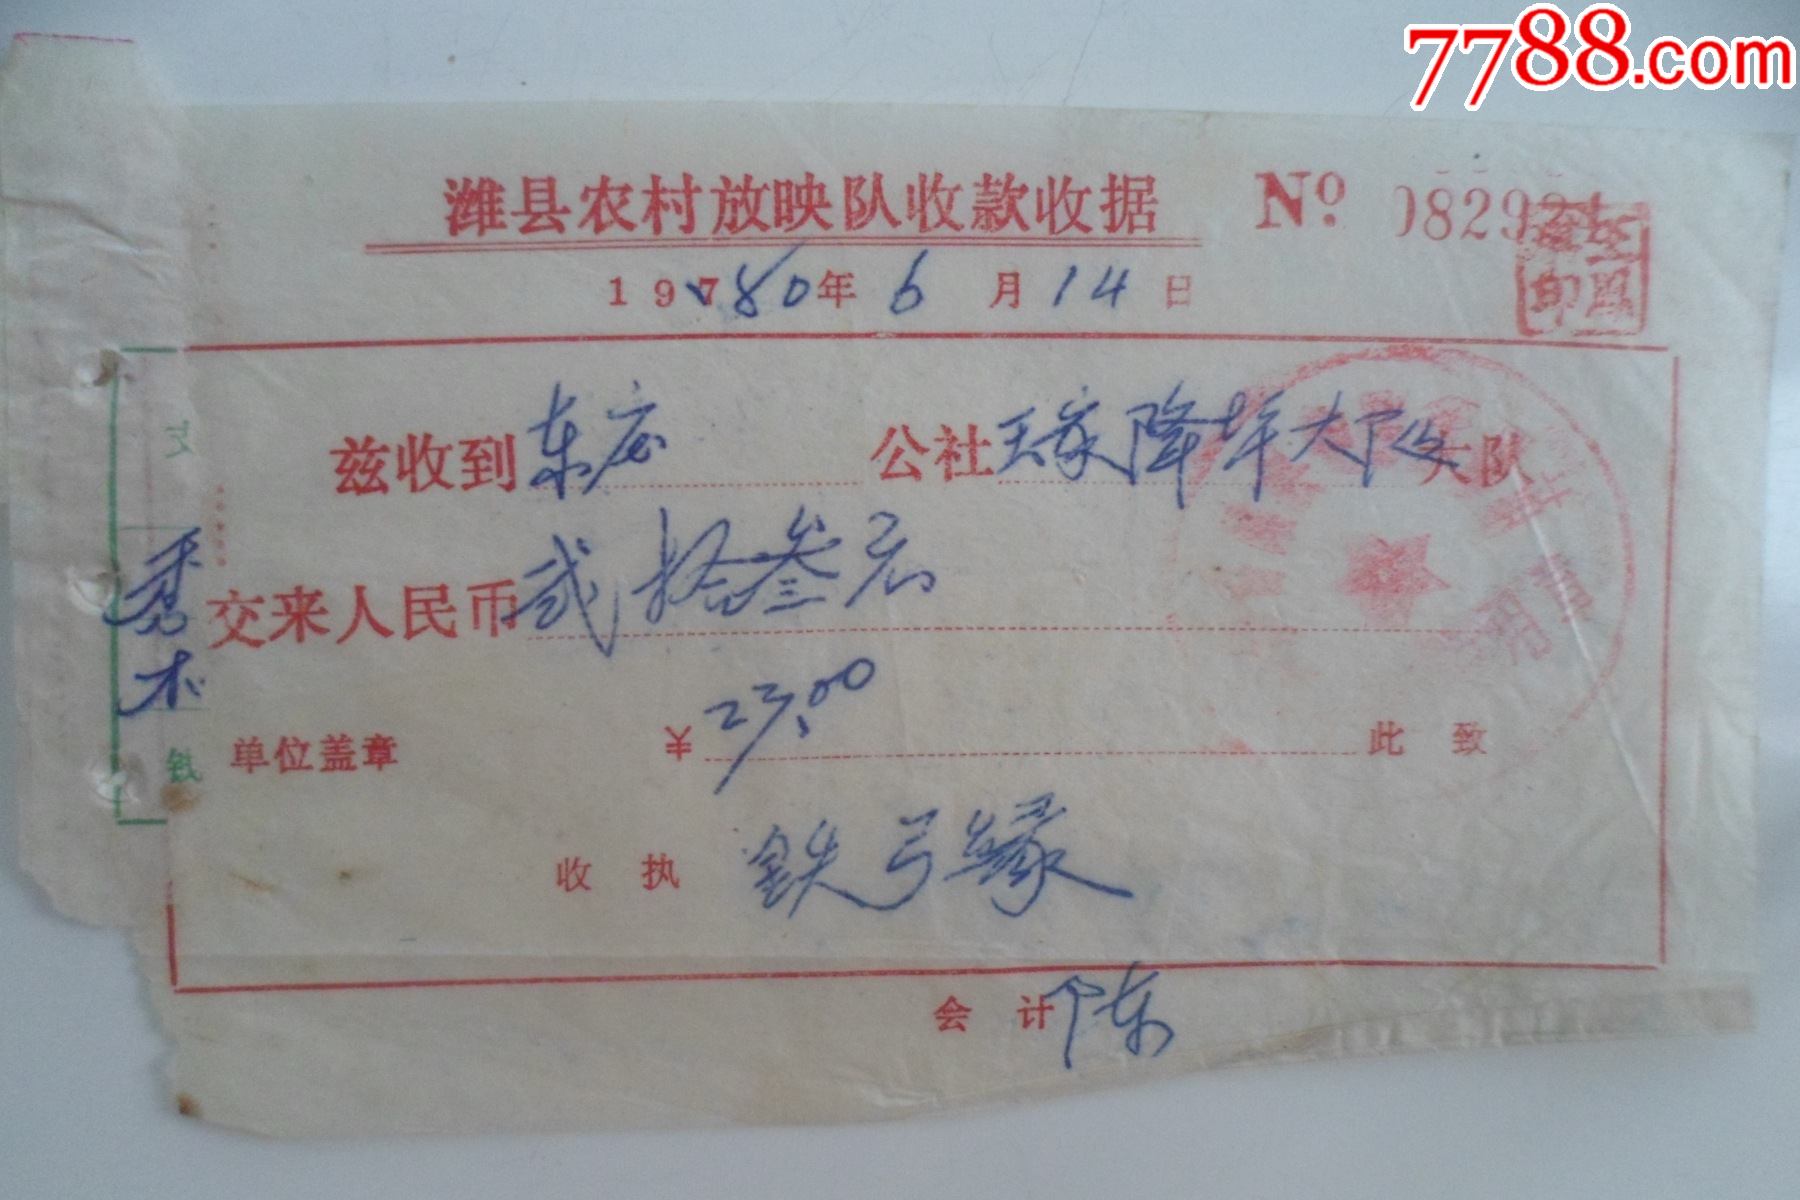 7788.com
潍县农村放映队收款收据 Nº 0829
1980年6月14日
兹收到东庄公社王家降坪大队大队
交来人民币贰拾叁元
单位盖章 ¥23.00 此致
收执 铁弓缘
会计 陈
支
钱